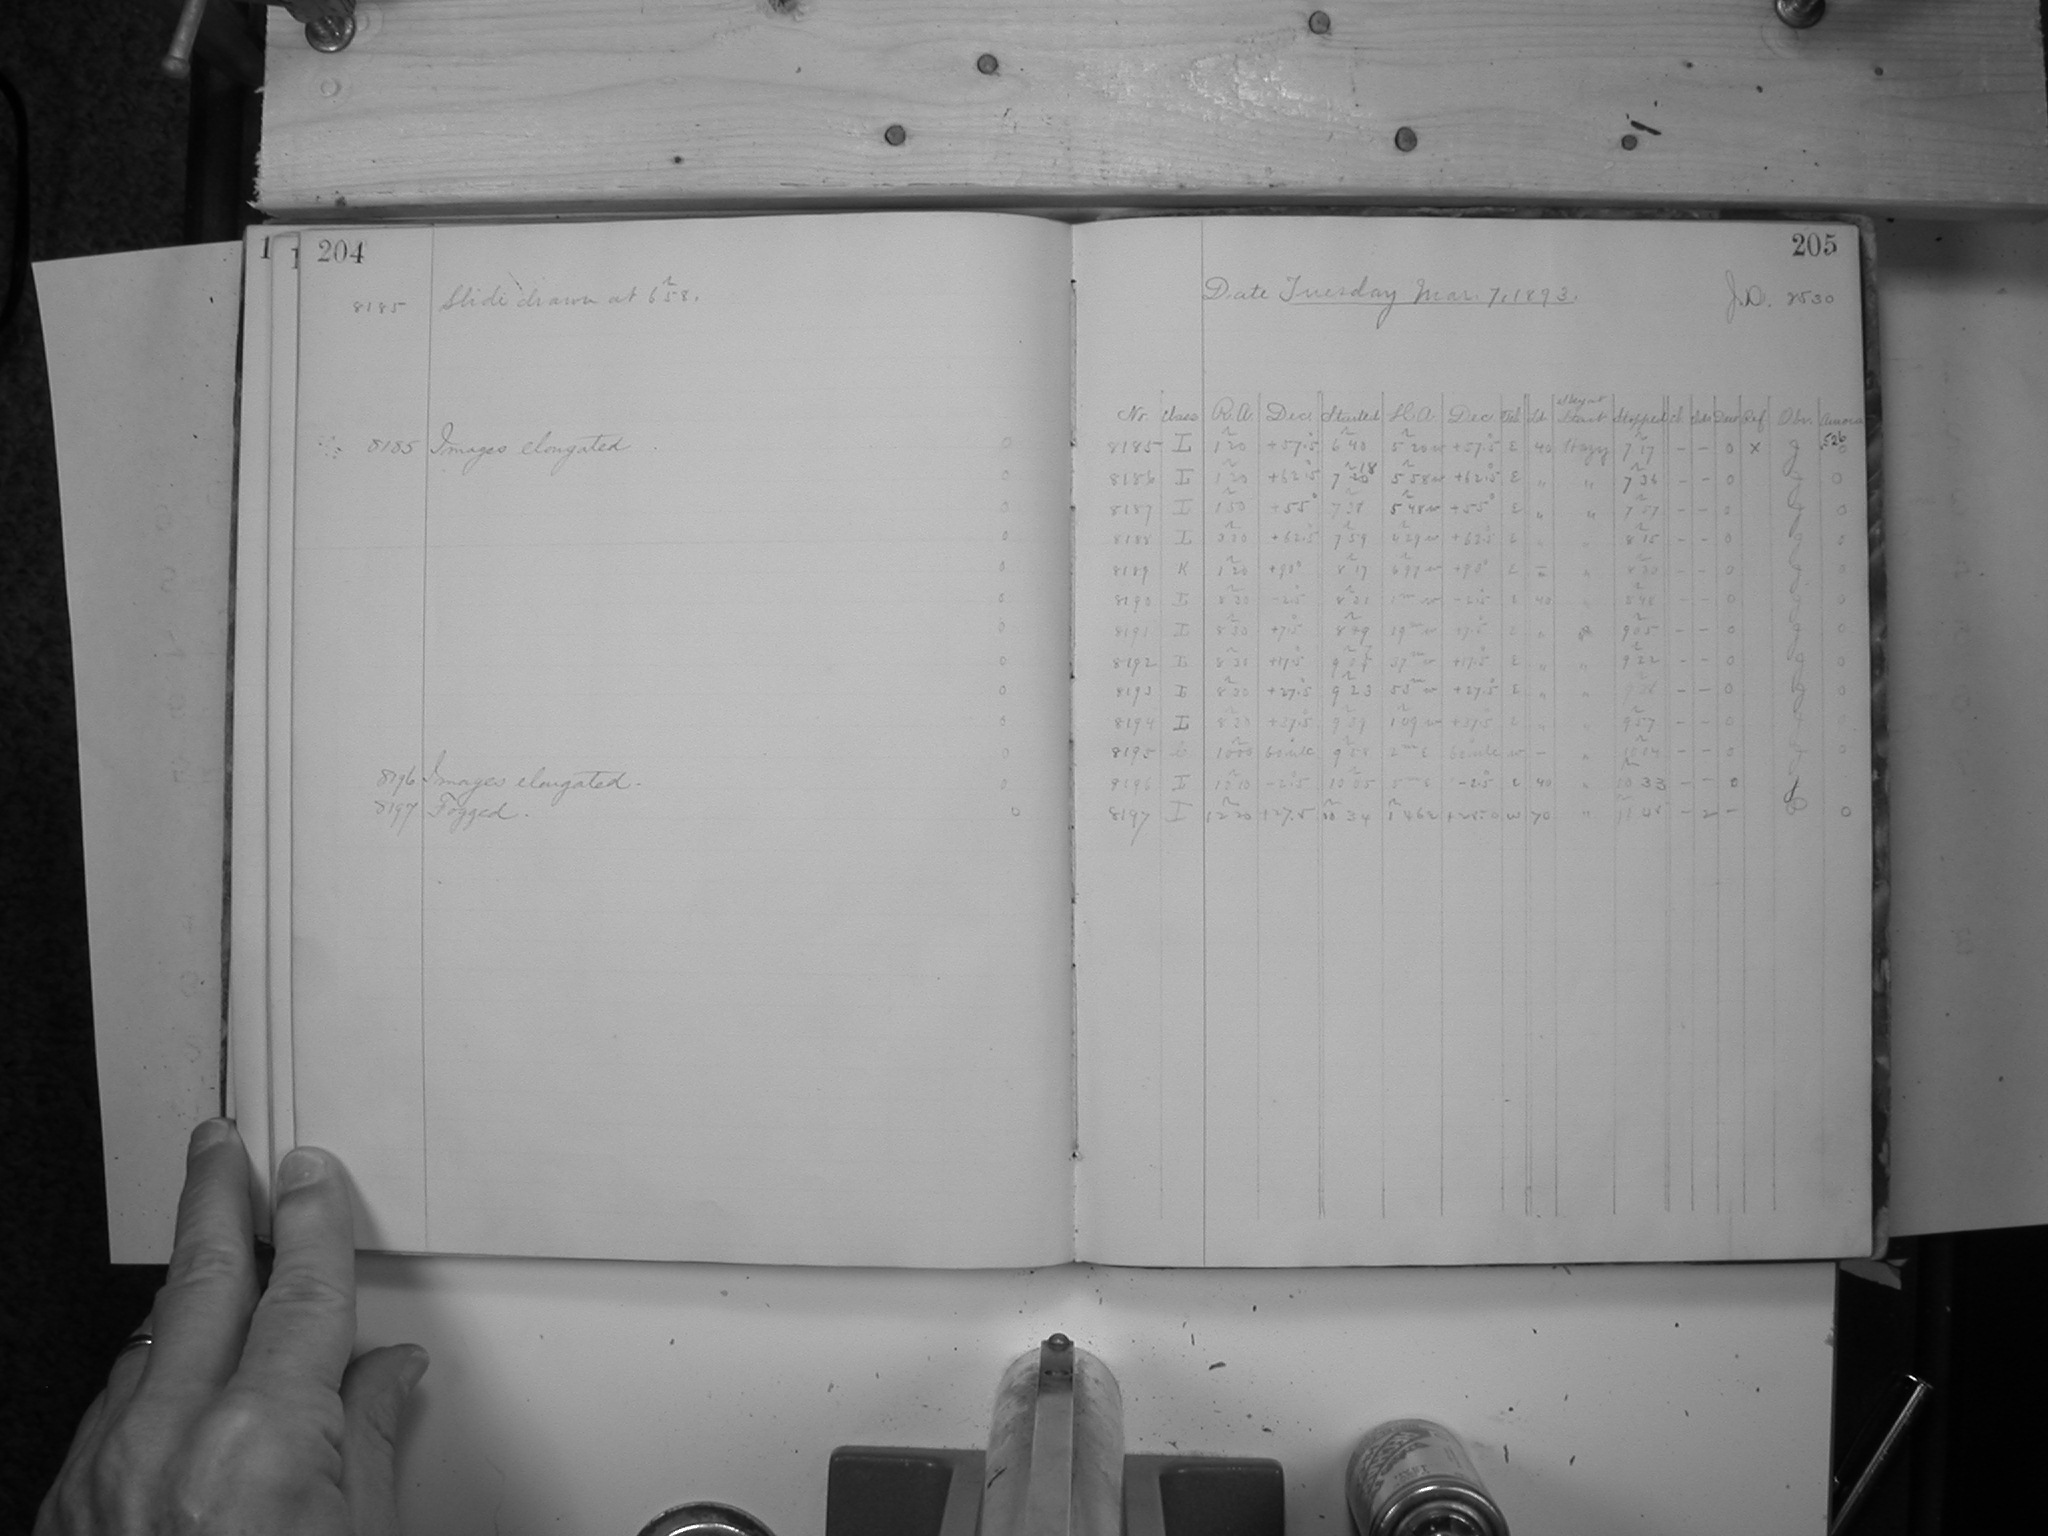 1
1
204
8185 Slide drawn at 6h58.
8185 Images elongated
0
0
0
0
0
0
0
0
0
0
0
8196 Images elongated. 0
8197 Fogged. 0
205
Date Tuesday Mar. 7, 1893. J.D. 2530
No. Class R.A. Dec. Started H.A. Dec. Tel. St. Sky at Start Stopped Dew Ref Obr. Aurora
8185 I 1h20 +57.5 6h40 5h20w +57.5 E 40 Hazy 7h17 - - 0 X J 0
8186 I 1h20 +62.5 7h18 5h58w +62.5 E " " 7h36 - - 0 0
8187 I 1h50 +55° 7h38 5h48w +55° E " " 7h57 - - 0 0
8188 I +62.5 7h59 4h29w +62.5 E " " 8h15 - - 0 0
8189 K 1h20 +90° 8h17 +90° E - " 8h20 - - 0 0
8190 I 8h30 -2.5 8h31 1m w -2.5 E 40 " 8h48 - - 0 0
8191 I 8h30 +7.5 8h49 19m w +7.5 E " 9h05 - - 0 0
8192 I 8h30 +17.5 9h07 37m w +17.5 E " " 9h22 - - 0 0
8193 I 8h30 +27.5 9h23 53m w +27.5 E " " - - 0 0
8194 I 8h30 +37.5 9h39 1h09w +37.5 E " " 9h57 - - 0 0
8195 10h00 9h58 2m E w - " 10h04 - - 0 0
8196 I 10h10 -2.5 10h05 5m E -2.5 E 40 " 10h33 - - 0
8197 I 12h20 +27.5 10h34 1h46E w 70 " - 2 - 0